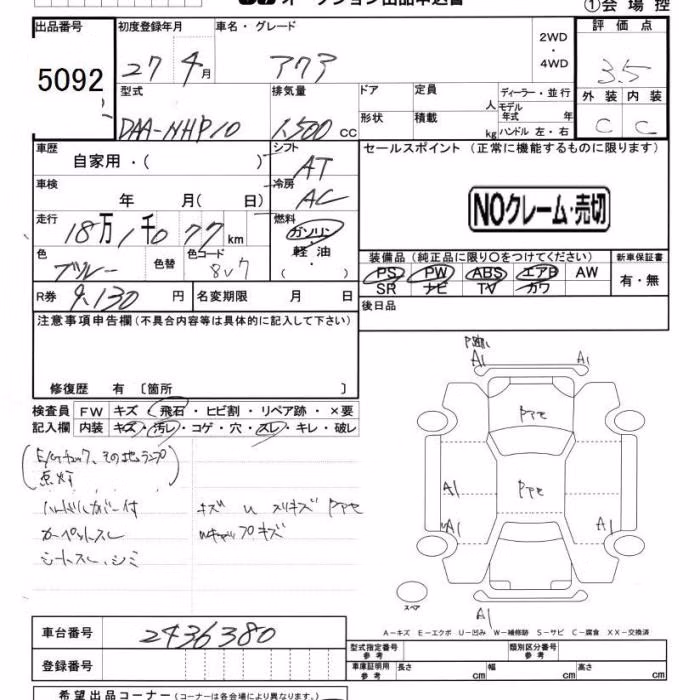 オークション出品申込書
①会場控
出品番号 初度登録年月 車名・グレード 2WD・4WD 評価点
5092 27年4月 アクア 3.5
型式 排気量 ドア 定員 人 ディーラー・並行 外装 内装
DAA-NHP10 1,500cc 形状 積載 kg モデル年式 年 ハンドル 左・右 C C
車歴 自家用・( ) シフト AT セールスポイント (正常に機能するものに限ります)
車検 年 月( 日) 冷房 AC
NOクレーム・売切
走行 18万1千077km 燃料 ガソリン・軽油・( )
色 ブルー 色替 色コード 8V7
装備品 (純正品に限り○をつけてください) 新車保証書
PS PW ABS エアB AW 有・無
SR ナビ TV カワ
R券 9,130円 名変期限 月 日 後日品
注意事項申告欄(不具合内容等は具体的に記入して下さい)
修復歴 有 〔箇所 〕
検査員 FW キズ・飛石・ヒビ割・リペア跡・×要
記入欄 内装 キズ・汚レ・コゲ・穴・スレ・キレ・破レ
(E/Gチェック、その他ランプ
点灯)
ハンドルカバー付 キズ U スリキズ Pアセ
カーペットスレ Wキャップキズ
シートスレ、シミ
A1 A1
Pアセ
Pアセ
A1
A1 A1
A1
スペア
A-キズ E-エクボ U-凹み W-補修跡 S-サビ C-腐食 XX-交換済
車台番号 2436380
登録番号
型式指定番号 参考 類別区分番号 参考
車庫証明用 参考 長さ cm 幅 cm 高さ cm
希望出品コーナー (コーナーは各会場により異なります。)